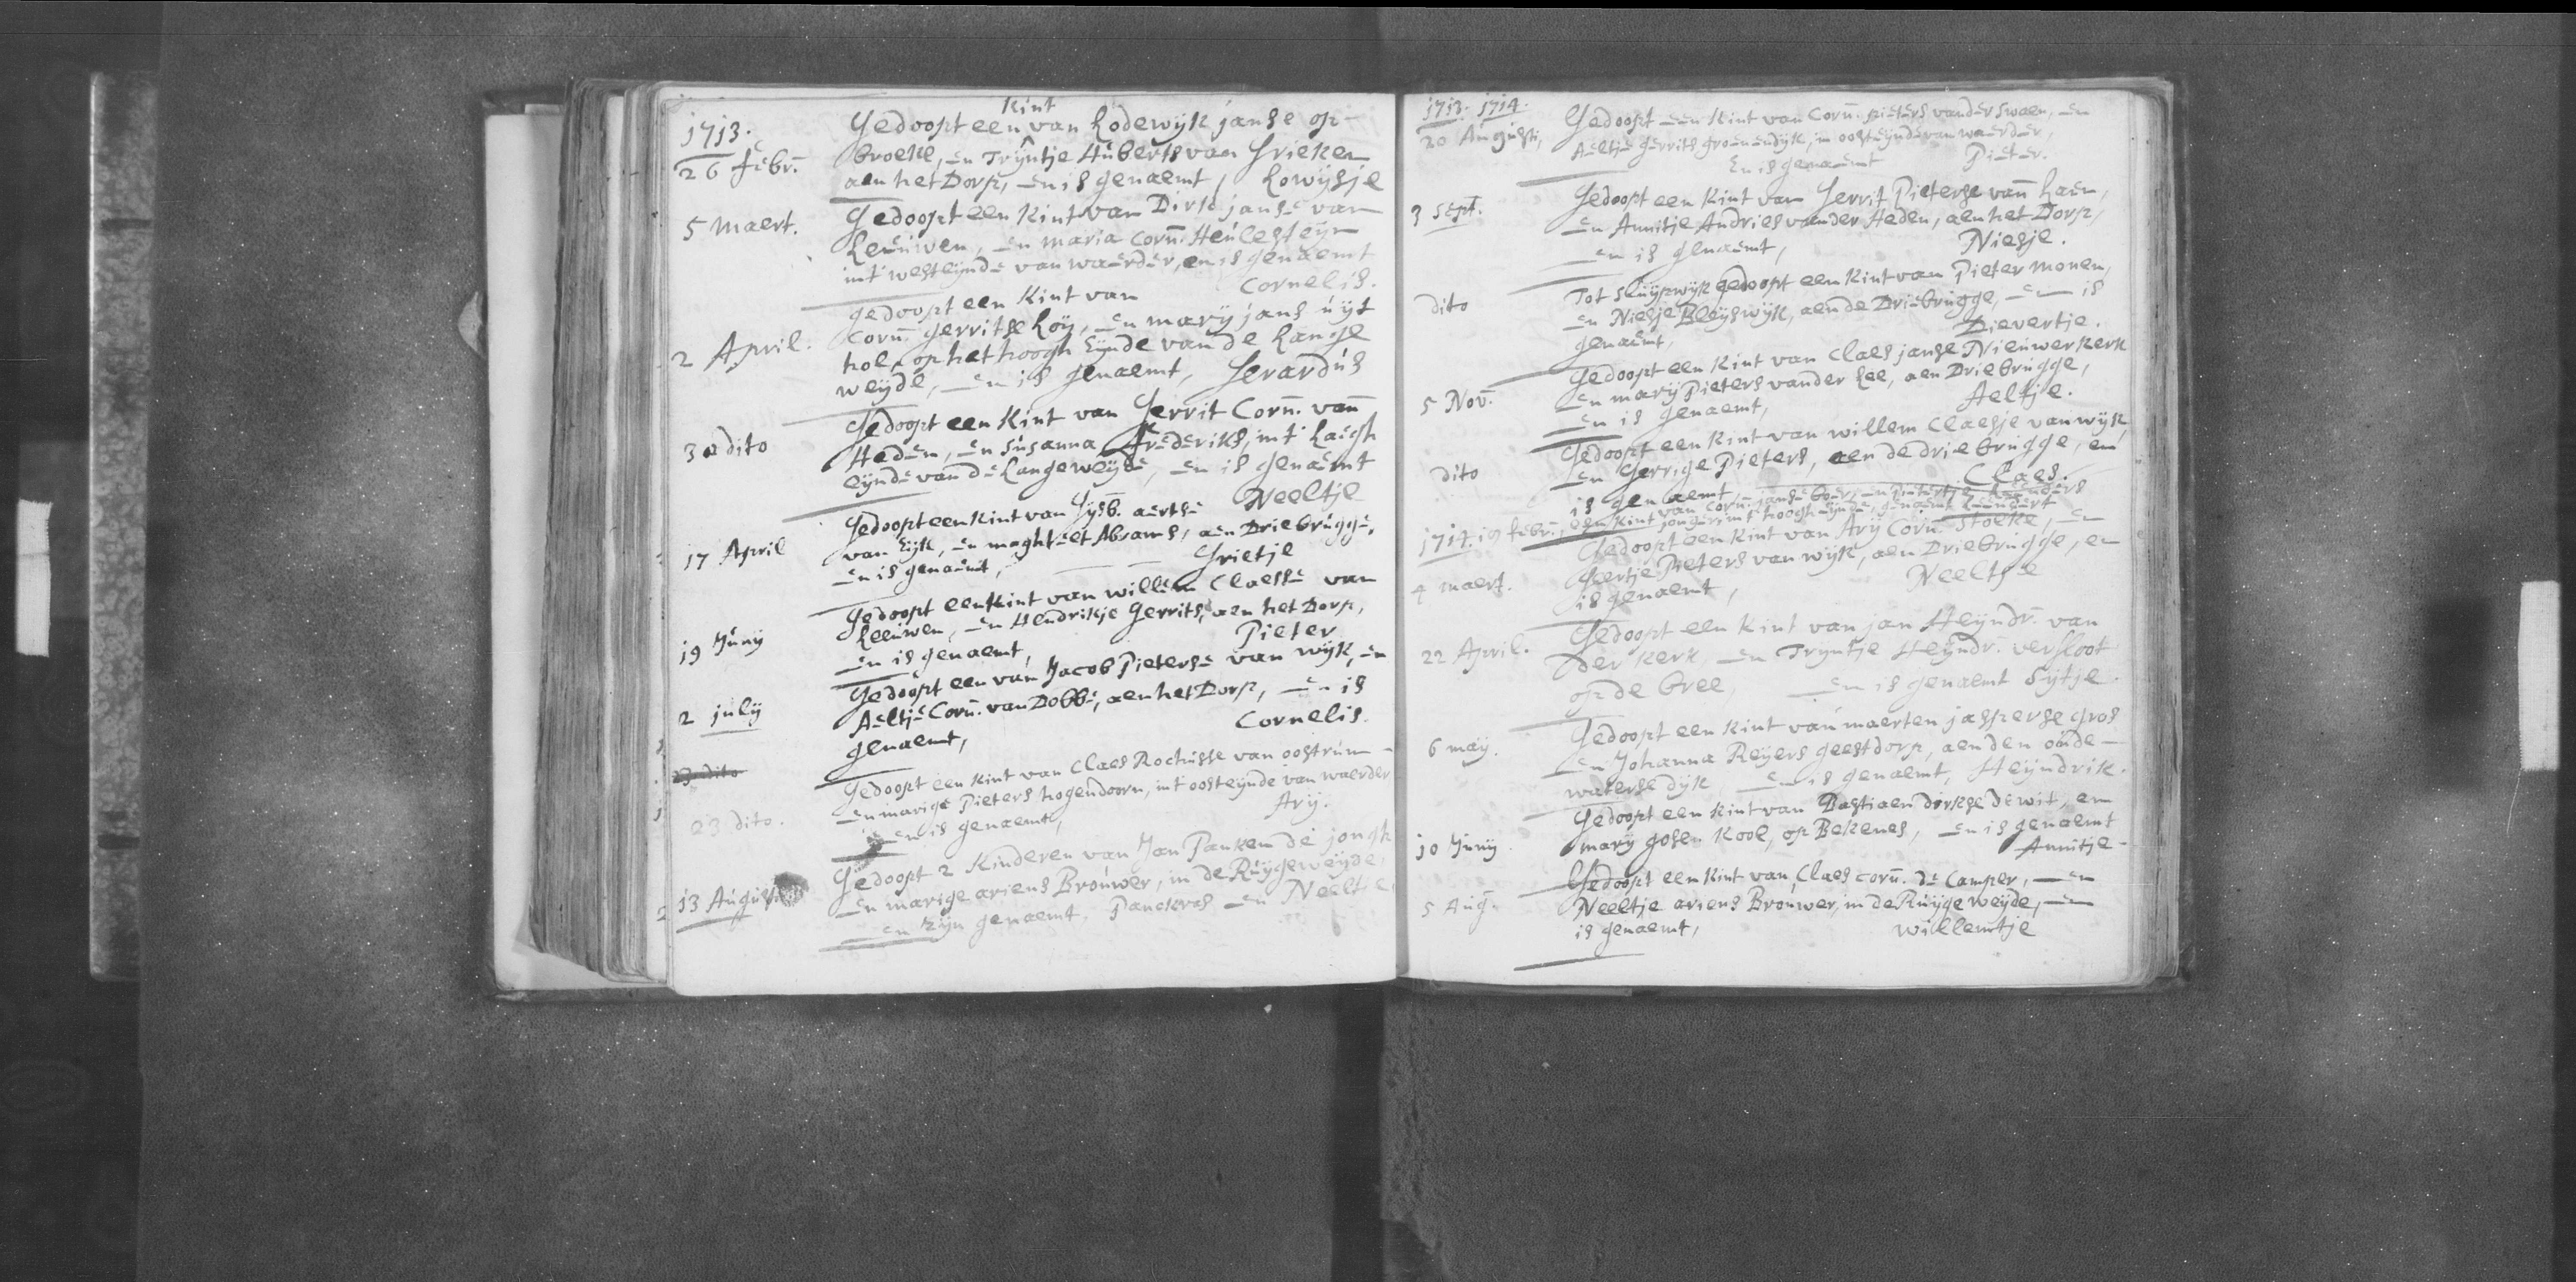 1713.
Gedoopt een kint van Lodewijk janse op-
26 febr. broeke, en Trijntje Huberts van Grieken
aen het Dorp, en is genaemt, Lowijsje
5 Maert. Gedoopt een kint van Dirk janse van
Leeuwen, en maria Corn. Heulesteyn
int westeynde van waerder, en is genaemt
Cornelis.
gedoopt een kint van
2 April. Corn. gerritse Loy, en mary jans uyt
hol, op het hoogh Eynde van de Lange
weyde, en is genaemt, Gerardus
Gedoopt een kint van Gerrit Corn. van
30 dito Heden, en Susanna Frederiks, int Laegh
eynde van de Langeweyde, en is genaemt
Neeltje
Gedoopt een kint van Gysb. aertse
17 April van Eyk, en maghtelt Abrams, aen Driebrugge,
en is genaemt, Grietje
Gedoopt een kint van willem Claesse van
19 Juny Leeuwen, en Hendrikje Gerrits, aen het Dorp,
en is genaemt, Pieter
Gedoopt een van Jacob Pieterse van Wijk, en
2 july Aeltje Corn. van Dobbe, aen het Dorp, en is
genaemt, Cornelis.
23 dito
Gedoopt een kint van Claes Rochusse van oostrum
23 dito. en marige Pieters hogendoorn, int oosteynde van waerder
en is genaemt, Ary.
Gedoopt 2 kinderen van Jan Panken de jongh
13 Augusti en marige ariens Brouwer, in de Ruygeweyde,
en zijn genaemt, Panckras en Neeltje
1713. 1714.
Gedoopt een kint van Corn. pieters vander Swaen, en
20 Augusti, Aeltje gerrits groenendijk, in oosteynde van waerder,
En is genaemt Pieter.
Gedoopt een kint van Gerrit Pieterse van Laen,
3 Sept. en Annitje Andries vander Heden, aen het Dorp,
en is genaemt, Niesje.
dito Tot Sluypwijk gedoopt een kint van Pieter monen,
en Niesje Bleyswijk, aen de Driebrugge, en is
genaemt, Dievertje.
Gedoopt een kint van Claes janse Nieuwerkerk
5 Nov. en mary Pieters vander Lee, aen Driebrugge,
en is genaemt, Aeltje.
Gedoopt een kint van willem Claesje van wijk
dito en Gerrige Pieters, aen de driebrugge, en
is genaemt, Claes.
van Corn. janse boer, en pietertje Leenders
1714. 19 febr. een kint jonger, int hoogh eynde, genaemt Leendert
Gedoopt een kint van Ary Corn. Stolke, en
4 maert. Geertje Pieters van wijk, aen Driebrugge, en
is genaemt, Neeltje
Gedoopt een kint van jan Heyndr. van
22 April. der kerk, en Trijntje Heyndr. versloot
op de bree, en is genaemt Sytje.
Gedoopt een kint van maerten jasperse gros
6 may. en Johanna Reyers geestdorp, aen den oude-
waterse dijk, en is genaemt, Heyndrik.
Gedoopt een kint van Bastiaen dirkse de wit, en
10 Juny mary gosen kool, op Bekenes, en is genaemt
Annitje
Gedoopt een kint van Claes corn. de Camper, en
5 Aug. Neeltje ariens Brouwer, in de Ruyge weyde, en
is genaemt, willemtje